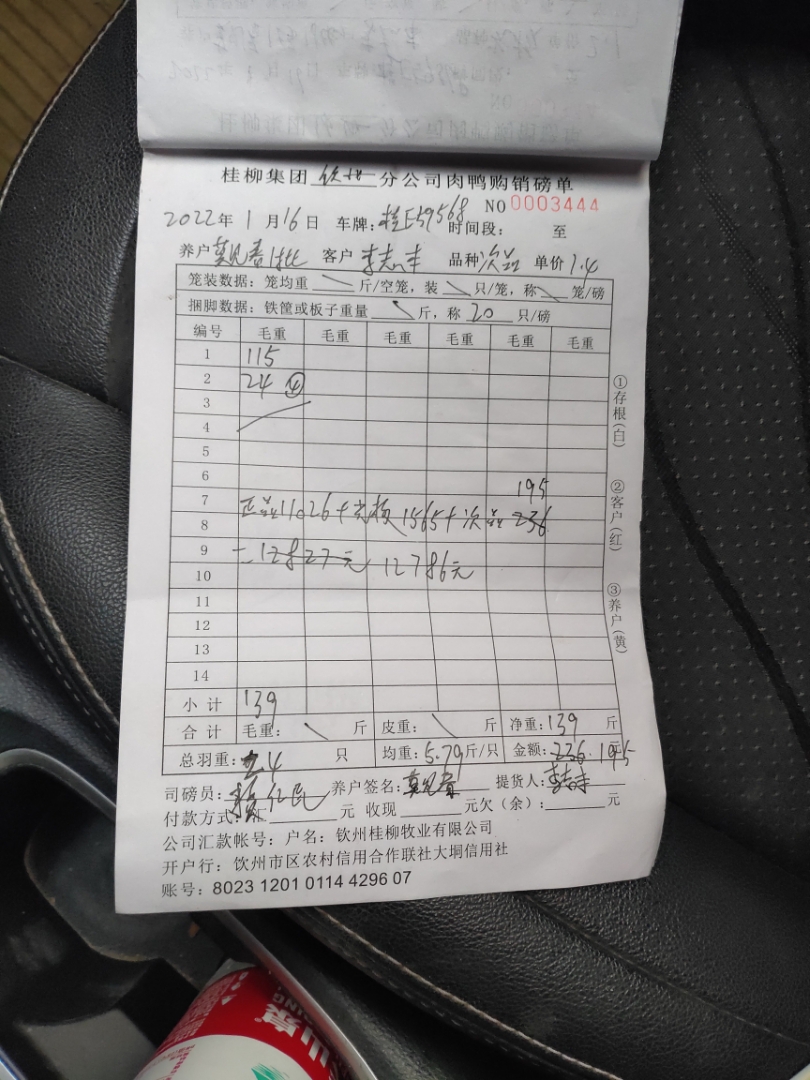 桂柳集团 钦州 分公司肉鸭购销磅单
NO 0003444
2022年 1月16日 车牌:桂E59568 时间段: 至
养户 客户 李志丰 品种 次品 单价 1.4
笼装数据:笼均重 斤/空笼,装 只/笼,称 笼/磅
捆脚数据:铁筐或板子重量 斤,称 20 只/磅
编号 毛重 毛重 毛重 毛重 毛重 毛重
1 115
2 24 ④
3
4
5
6 195
7 正品11026+光板1565+次品236
8
9 =12827元 12786元
10
11
12
13
14
小计 139
合计 毛重: 斤 皮重: 斤 净重:139 斤
总羽重: 24 只 均重:5.79斤/只 金额:236.195
司磅员: 养户签名: 提货人:李志丰
付款方式: 元 收现 元欠(余): 元
公司汇款帐号:户名:钦州桂柳牧业有限公司
开户行:钦州市区农村信用合作联社大垌信用社
账号:8023 1201 0114 4296 07
①存根(白)
②客户(红)
③养户(黄)